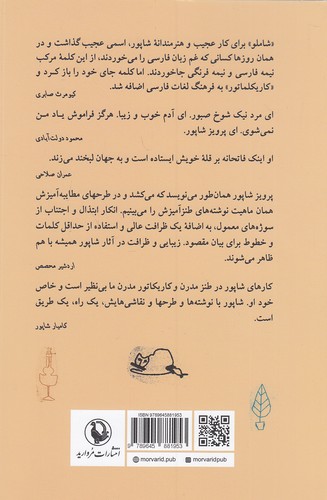 «شاملو» برای کار عجیب و هنرمندانهٔ شاپور، اسمی عجیب گذاشت و در
همان روزها کسانی که غم زبان فارسی را می‌خوردند، از این کلمهٔ مرکب
نیمه فارسی و نیمه فرنگی جاخوردند. اما کلمه جای خود را باز کرد و
«کاریکلماتور» به فرهنگ لغات فارسی اضافه شد.
کیومرث صابری
ای مرد نیک شوخ صبور. ای آدم خوب و زیبا. هرگز فراموش یاد من
نمی‌شوی. ای پرویز شاپور.
محمود دولت‌آبادی
او اینک فاتحانه بر قلهٔ خویش ایستاده است و به جهان لبخند می‌زند.
عمران صلاحی
پرویز شاپور همان‌طور می‌نویسد که می‌کشد و در طرحهای مطایبه‌آمیزش
همان ماهیت نوشته‌های طنزآمیزش را می‌بینیم. انکار ابتذال و اجتناب از
سوژه‌های معمول، به اضافهٔ یک ظرافت عالی و استفاده از حداقل کلمات
و خطوط برای بیان مقصود. زیبایی و ظرافت در آثار شاپور همیشه با هم
ظاهر می‌شوند.
اردشیر محصص
کارهای شاپور در طنز مدرن و کاریکاتور مدرن ما بی‌نظیر است و خاص
خود او. شاپور با نوشته‌ها و طرحها و نقاشی‌هایش، یک راه، یک طریق
است.
کامیار شاپور
انتشارات مروارید
ISBN 9789645881953
9 789645 881953
morvarid.pub
morvarid.pub